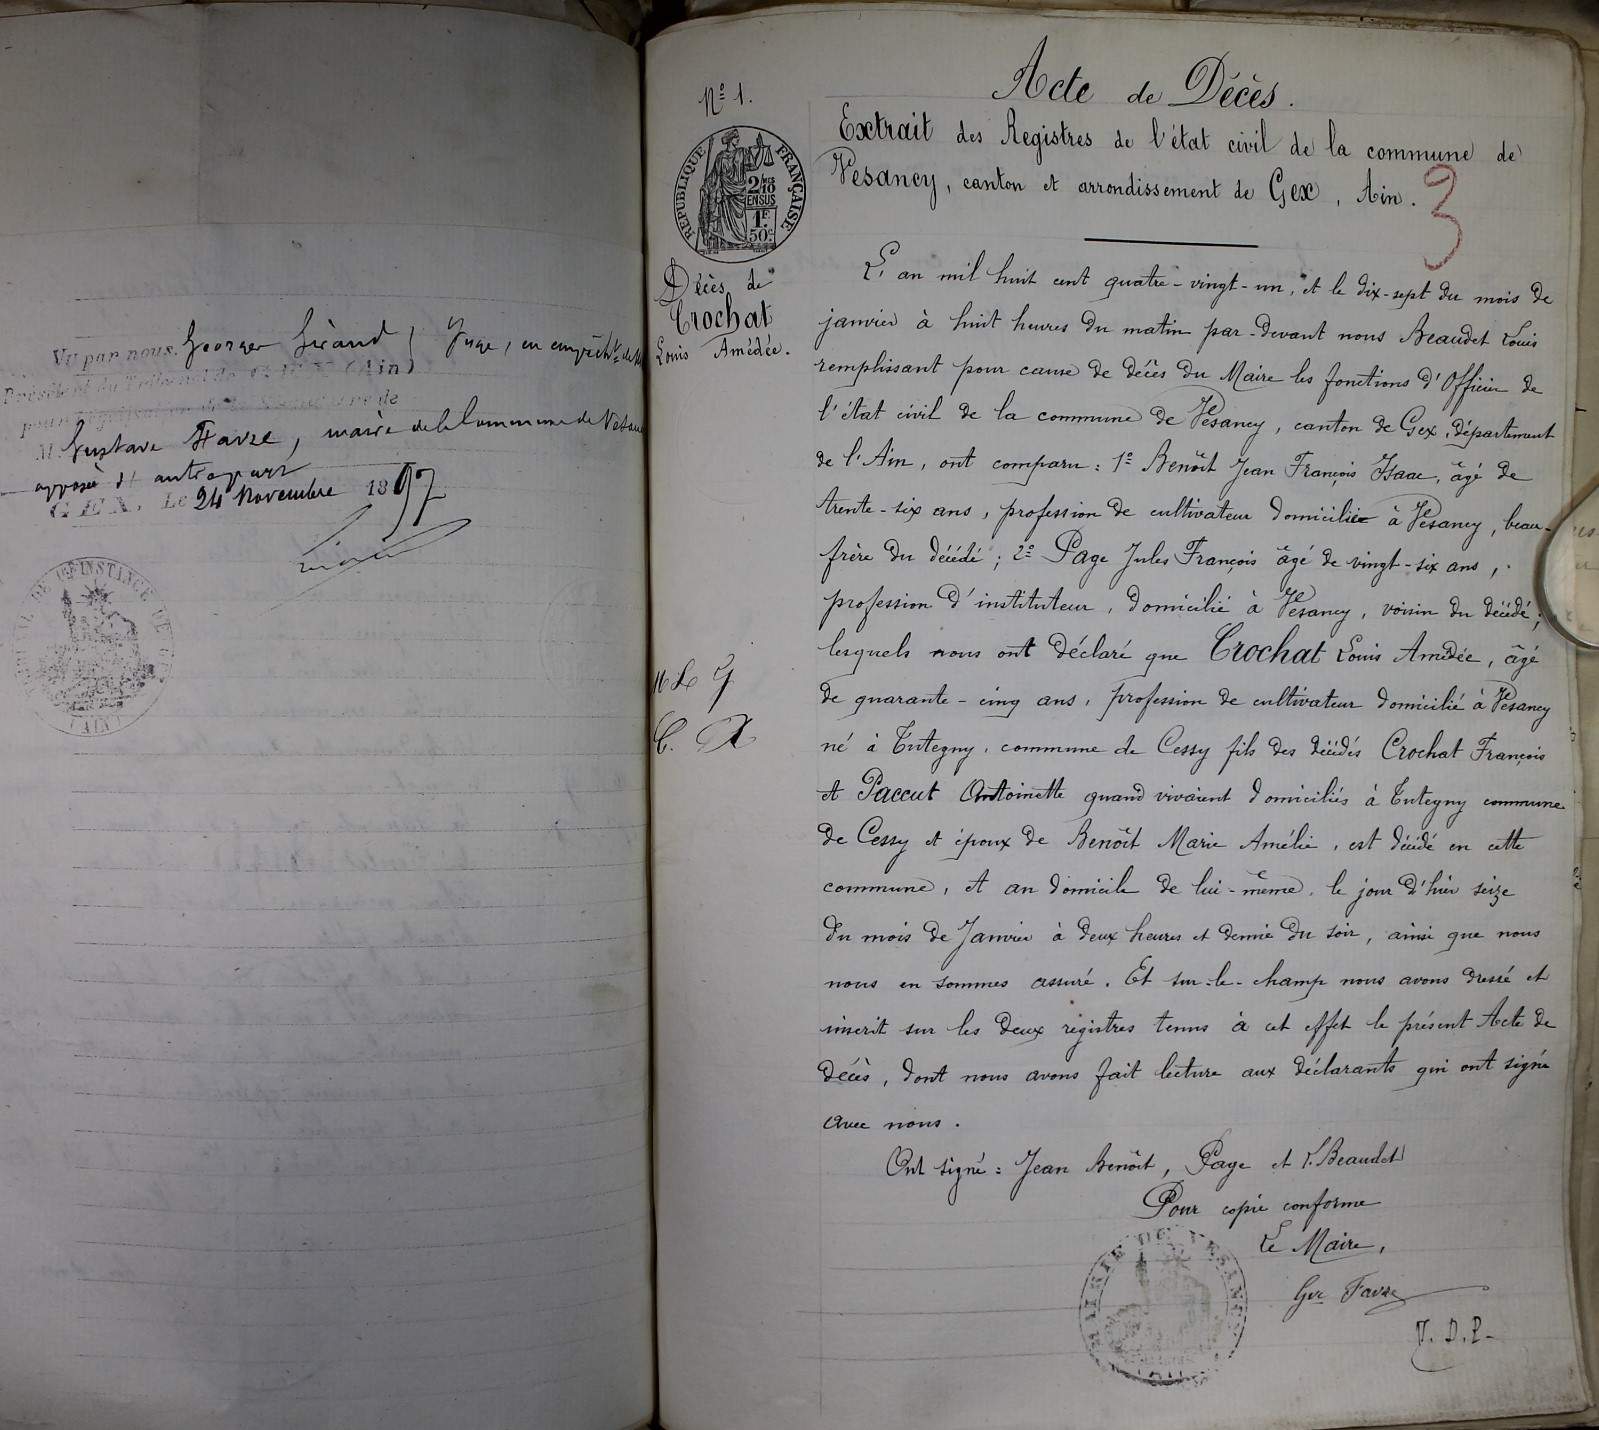 Vu par nous, Georges Girand, Juge, en empêcht de M
Président du Tribunal de GEX (Ain)
pour légalisation de la signature de
M. Gustave Favre, maire de la Commune de Vesan
apposée d'autre part
GEX, Le 24 Novembre 1897
TRIBUNAL DE 1RE INSTANCE DE GEX
(AIN)
No 1.
RÉPUBLIQUE FRANÇAISE
2/10
EN SUS
1F
50c
Décès de
Crochat
Louis Amédée.
Acte de Décès.
Extrait des Registres de l'état civil de la commune de
Vesancy, canton et arrondissement de Gex, Ain.
3
L'an mil huit cent quatre-vingt-un, et le dix-sept du mois de
janvier à huit heures du matin par-devant nous Beaudet Louis
remplissant pour cause de décès du Maire les fonctions d'Officier de
l'état civil de la commune de Vesancy, canton de Gex, département
de l'Ain, ont comparu : 1o Benoît Jean François Isaac, âgé de
trente-six ans, profession de cultivateur domicilié à Vesancy, beau-
frère du décédé ; 2o Page Jules François âgé de vingt-six ans,
profession d'instituteur, domicilié à Vesancy, voisin du décédé ;
lesquels nous ont déclaré que Crochat Louis Amédée, âgé
de quarante-cinq ans, profession de cultivateur domicilié à Vesancy
né à Tutegny, commune de Cessy fils des décédés Crochat François
et Paccut Antoinette quand vivaient domiciliés à Tutegny commune
de Cessy et époux de Benoît Marie Amélie, est décédé en cette
commune, et au domicile de lui-même, le jour d'hier seize
du mois de Janvier à deux heures et demie du soir, ainsi que nous
nous en sommes assuré. Et sur-le-champ nous avons dressé et
inscrit sur les deux registres tenus à cet effet le présent Acte de
décès, dont nous avons fait lecture aux déclarants qui ont signé
avec nous.
Ont signé : Jean Benoît, Page et L. Beaudet
Pour copie conforme
Le Maire,
Gve Favre
MAIRIE DE VESANCY